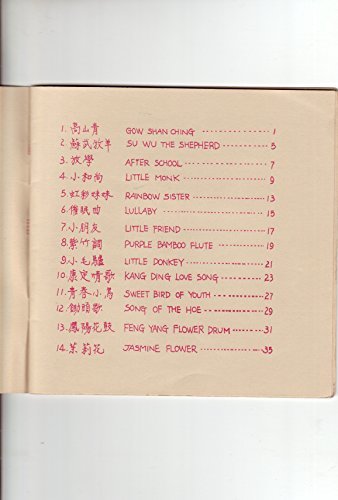 1. 高山青 GOW SHAN CHING ---------- 1
2. 蘇武牧羊 SU WU THE SHEPHERD ---------- 5
3. 放學 AFTER SCHOOL ---------- 7
4. 小和尚 LITTLE MONK ---------- 9
5. 虹彩妹妹 RAINBOW SISTER ---------- 13
6. 催眠曲 LULLABY ---------- 15
7. 小朋友 LITTLE FRIEND ---------- 17
8. 紫竹調 PURPLE BAMBOO FLUTE ---------- 19
9. 小毛驢 LITTLE DONKEY ---------- 21
10. 康定情歌 KANG DING LOVE SONG ---------- 23
11. 青春小鳥 SWEET BIRD OF YOUTH ---------- 27
12. 鋤頭歌 SONG OF THE HOE ---------- 29
13. 鳳陽花鼓 FENG YANG FLOWER DRUM ---------- 31
14. 茉莉花 JASMINE FLOWER ---------- 35